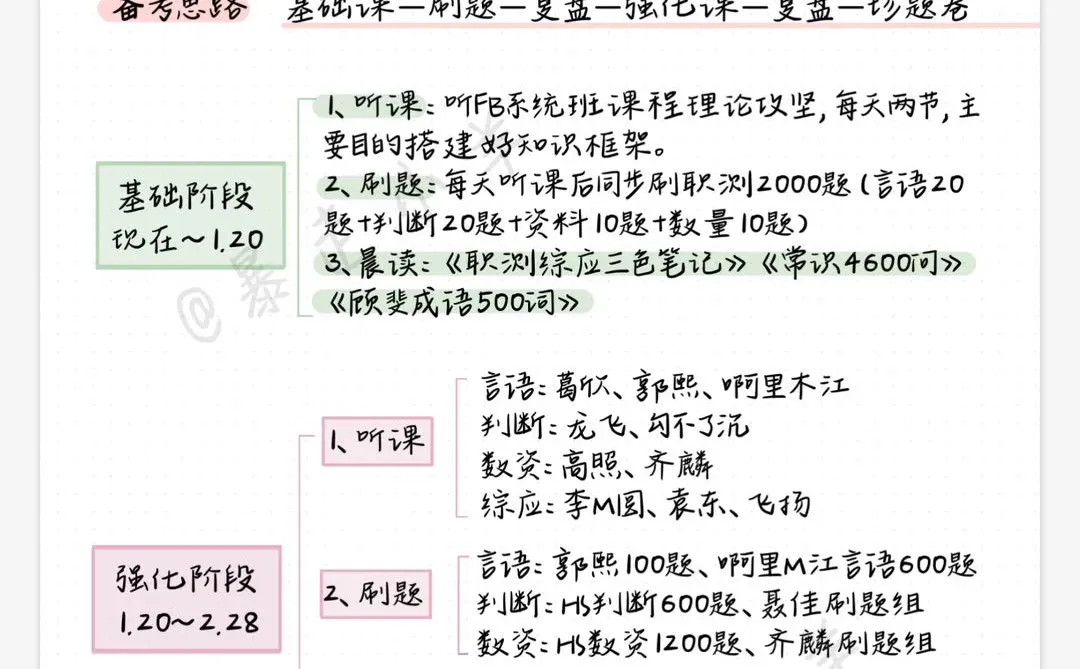 备考思路 基础课—刷题—复盘—强化课—复盘—珍题卷
1、听课：听FB系统班课程理论攻坚,每天两节,主
要目的搭建好知识框架。
基础阶段
现在～1.20
2、刷题：每天听课后同步刷职测2000题(言语20
题+判断20题+资料10题+数量10题)
3、晨读：《职测综应三色笔记》《常识4600问》
《顾斐成语500词》
强化阶段
1.20～2.28
1、听课
言语：葛欣、郭熙、啊里木江
判断：龙飞、勾不了沉
数资：高照、齐麟
综应：李M圆、袁东、飞扬
2、刷题
言语：郭熙100题、啊里M江言语600题
判断：HS判断600题、聂佳刷题组
数资：HS数资1200题、齐麟刷题组